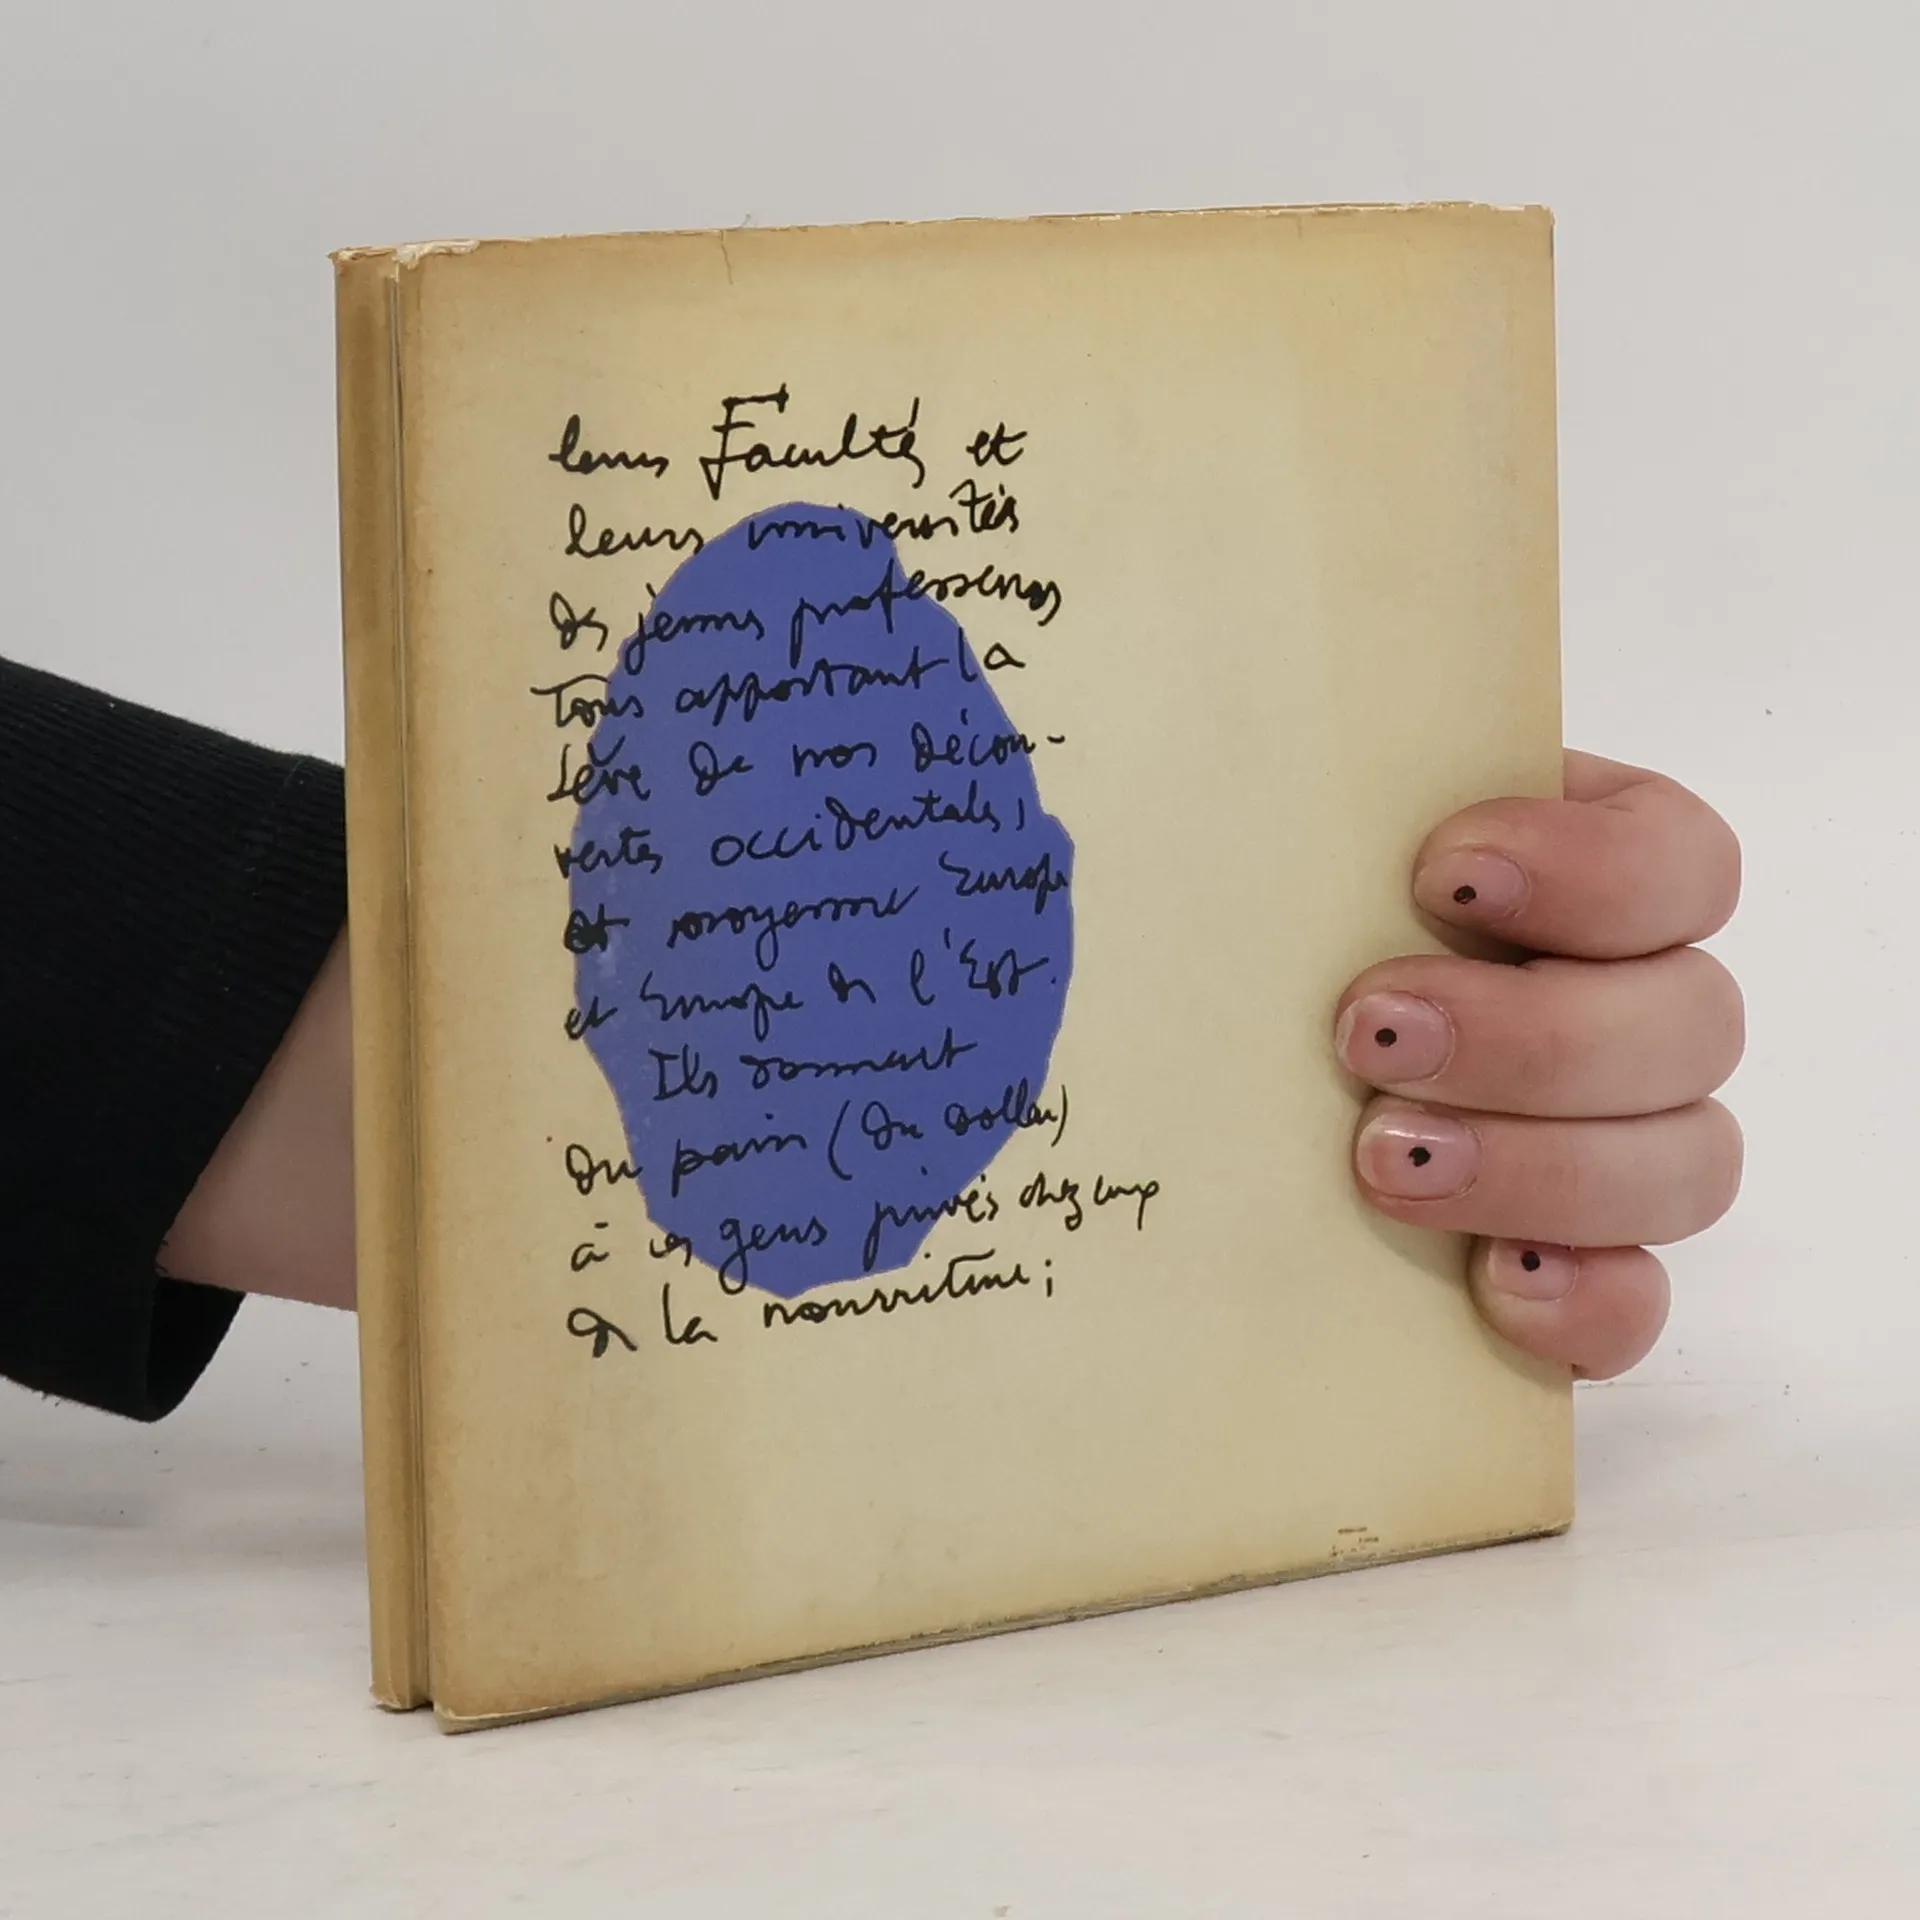 leurs Facultés et
leurs universités
des jeunes professeurs
Tous apportant la
sève de nos décou-
vertes occidentales,
et moyenne Europe
et Europe de l'Est.
Ils donnent
du pain (du dollar)
à ces gens privés chez eux
de la nourriture;